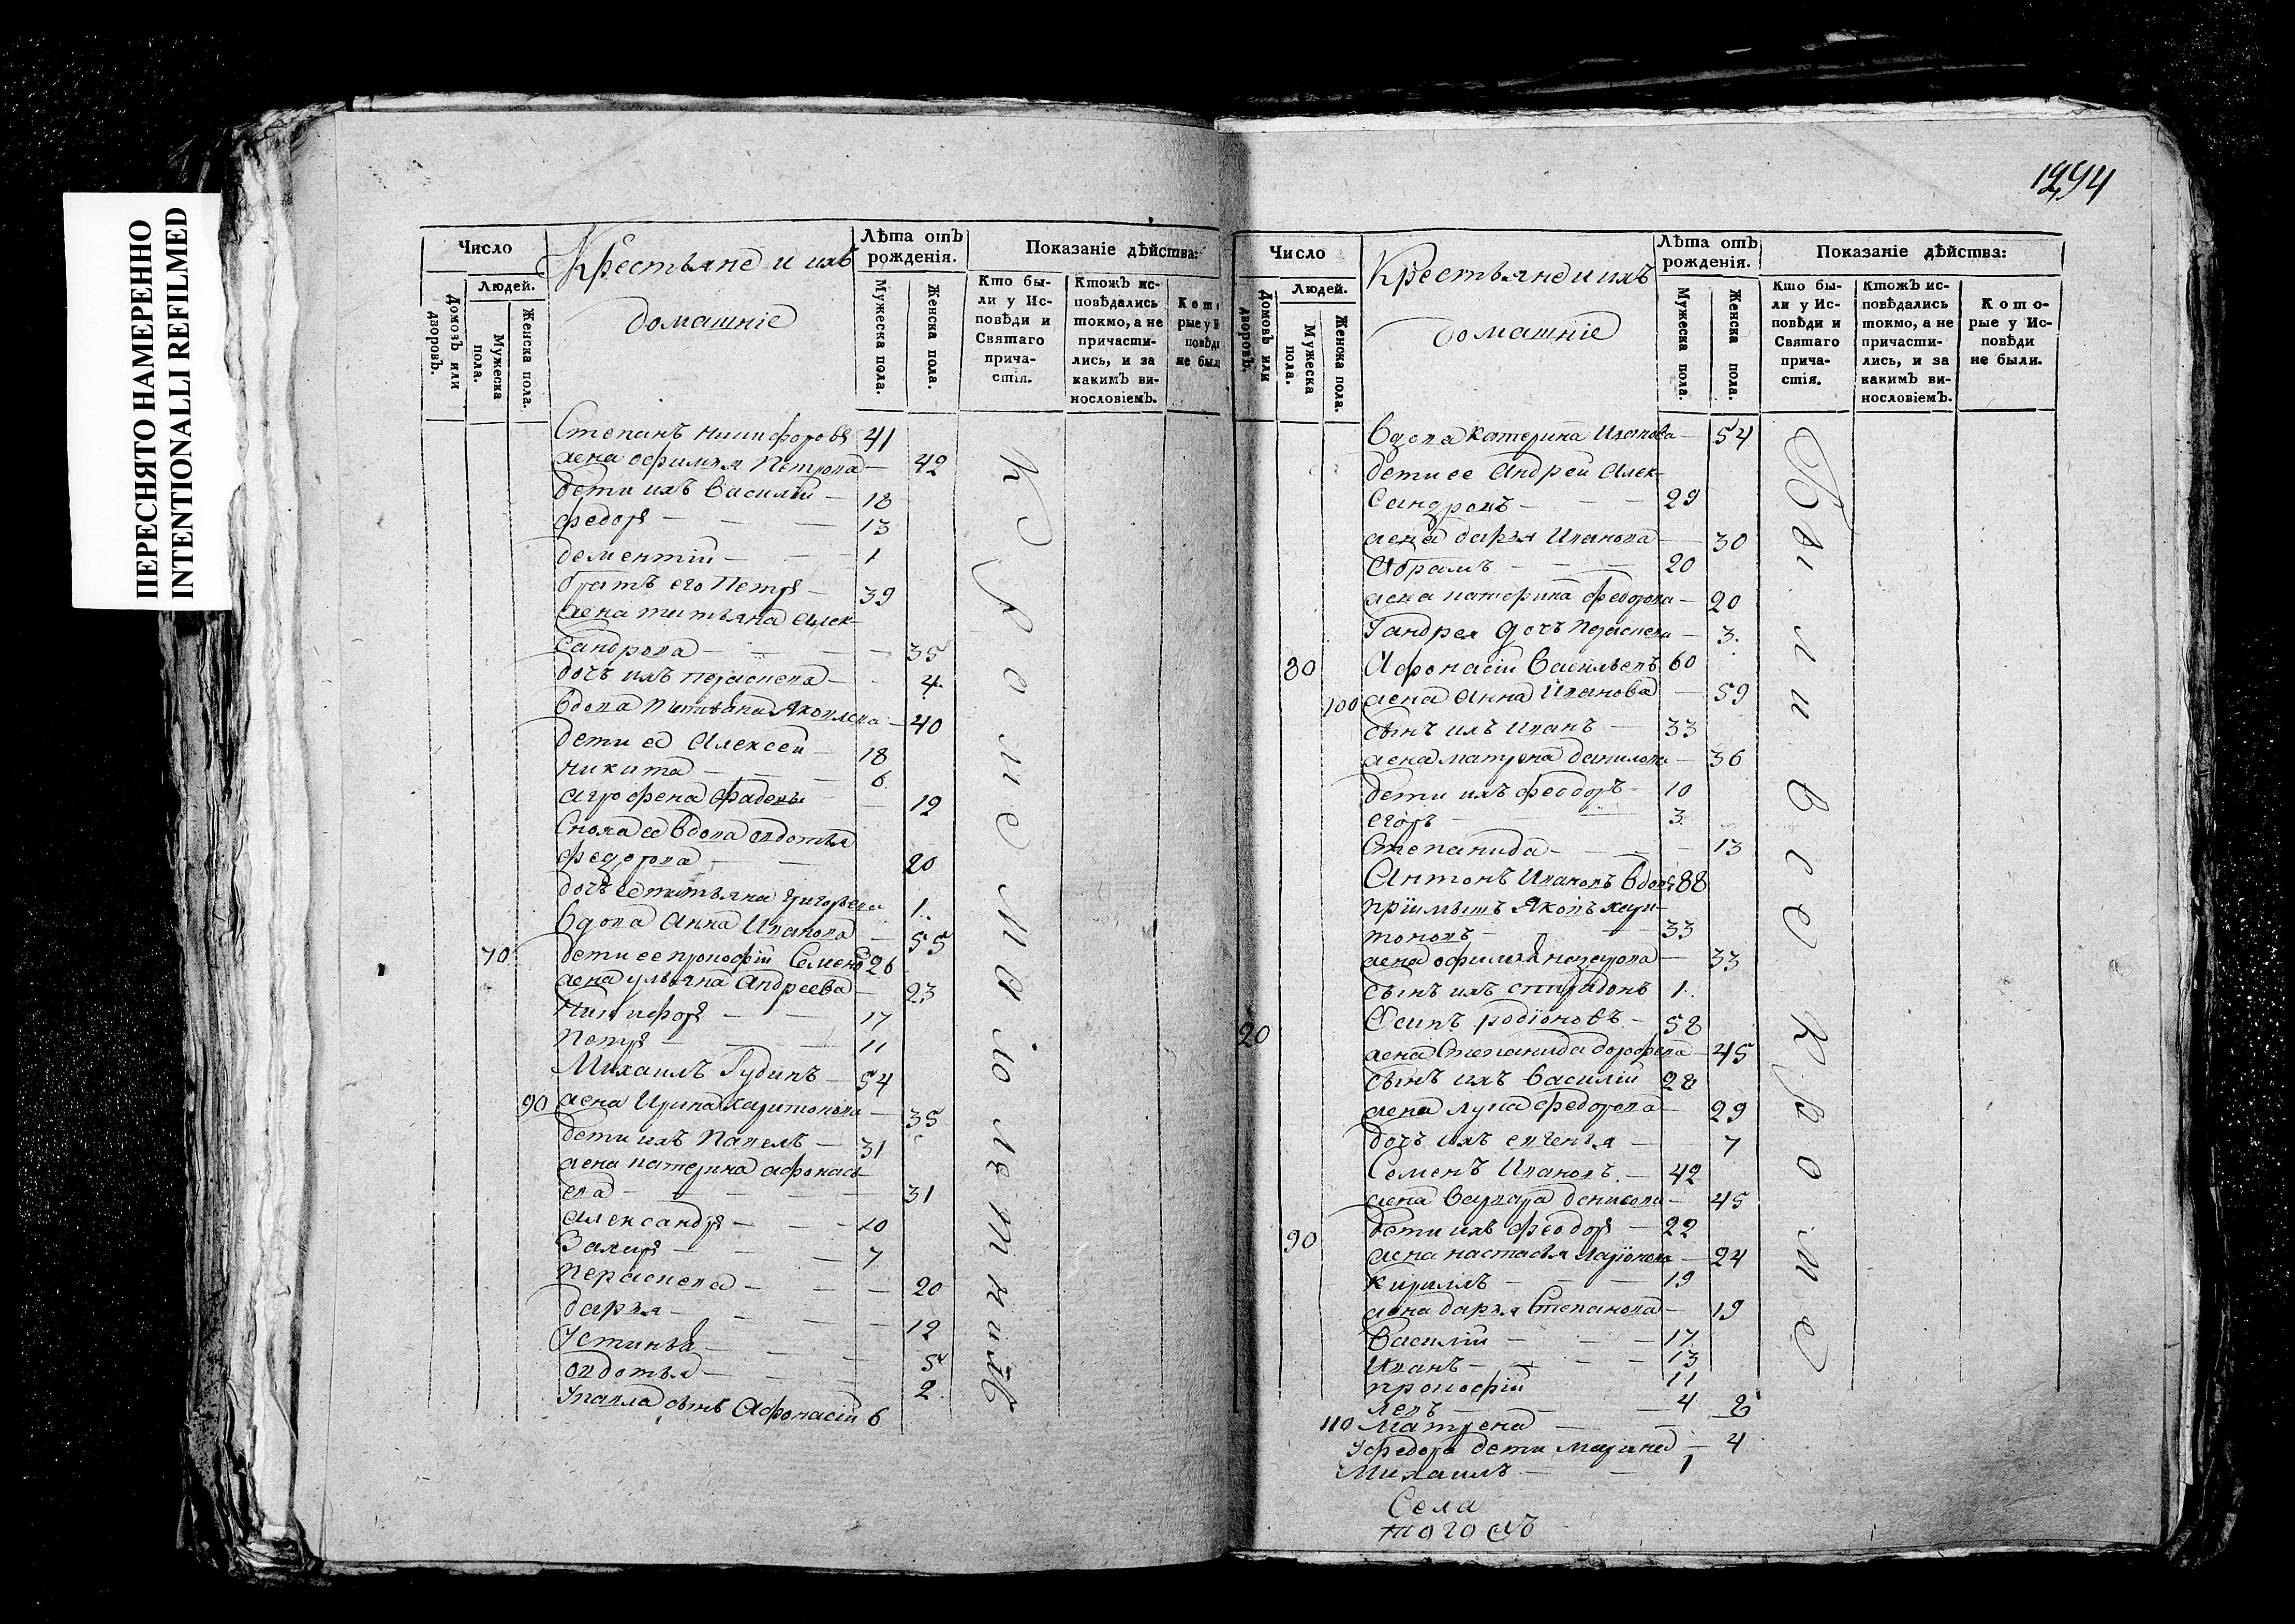 ПЕРЕСНЯТО НАМЕРЕННО
INTENTIONALLI REFILMED
Число
Людей.
Домовъ или дворовъ.
Мужеска пола.
Женска пола.
Крестьяне и ихъ
домашніе
Лѣта отъ рожденія.
Мужеска пола.
Женска пола.
Показаніе дѣйства:
Кто бы-
ли у Ис-
повѣди и
Святаго
прича-
стія.
Ктожъ ис-
повѣдались
токмо, а не
причасти-
лись, и за
какимъ ви-
нословіемъ.
Степанъ никифоровъ 41
жена офимья Петрова — 42
дети ихъ василій — 18
федоръ — 13
дементій — 1
братъ его Петръ — 39
жена титьяна алек-
сандрова — 35
дочь ихъ парасвева — 4
вдова титьяна Яковлева — 40
дети ее алексей 18
никита — 6
агрофена — 12
Сноха ее вдова овдотья
федорова — 20
дочь ее титьяна григорьева 1
вдова анна иванова — 55
70 дети ее прокофій Семено 26
жена ульяна андреева — 23
никифоръ — 17
петръ — 11
Михаилъ Гудинъ — 54
90 жена ирина харитонова — 35
дети ихъ павелъ — 31
жена катерина афонась
ева — 31
александръ — 10
Захаръ — 7
перасвева — 20
дарья — 12
Устинья — 5
овдотья — 2
У павла сынъ Афонасій 6
К р о м е м а л о л е т н и х ъ
1294
Число
Людей.
Домовъ или дворовъ.
Мужеска пола.
Женска пола.
Крестьяне и ихъ
домашніе
Лѣта отъ рожденія.
Мужеска пола.
Женска пола.
Показаніе дѣйства:
Кто бы-
ли у Ис-
повѣди и
Святаго
прича-
стія.
Ктожъ ис-
повѣдались
токмо, а не
причасти-
лись, и за
какимъ ви-
нословіемъ.
Кото-
рые у Ис-
повѣди
не были.
вдова катерина иванова — 54
дети ее андрей алек-
сандровъ — 29
жена дарья иванова — 30
абрамъ — 20
жена катерина федорова — 20
У андрея дочь парасвева — 3
80 Афонасій васильевъ 60
100 жена анна иванова — 59
сынъ ихъ иванъ — 33
жена матрена данилова — 36
дети ихъ феодоръ — 10
егоръ — 3
Степанида — 13
Антонъ ивановъ вдовъ 88
пріимышъ Яковъ хари-
тоновъ — 33
жена офимья назарова — 33
сынъ ихъ спиридонъ 1
20 Осипъ родіоновъ — 58
жена Степанида дорофева — 45
сынъ ихъ василій 28
жена лукія федорова — 29
дочь ихъ евгенья — 7
Семенъ ивановъ — 42
жена варвара денисова — 45
90 дети ихъ феодоръ — 22
жена настасья ларіонова — 24
кирилъ — 19
жена дарья Степанова — 19
василій — 17
иванъ — 13
прокофій 11
левъ — 4
110 матрена — 8
У федора дети марина — 4
Михаилъ — 1
Села
того жъ
Б ы л и в с е к р о м е